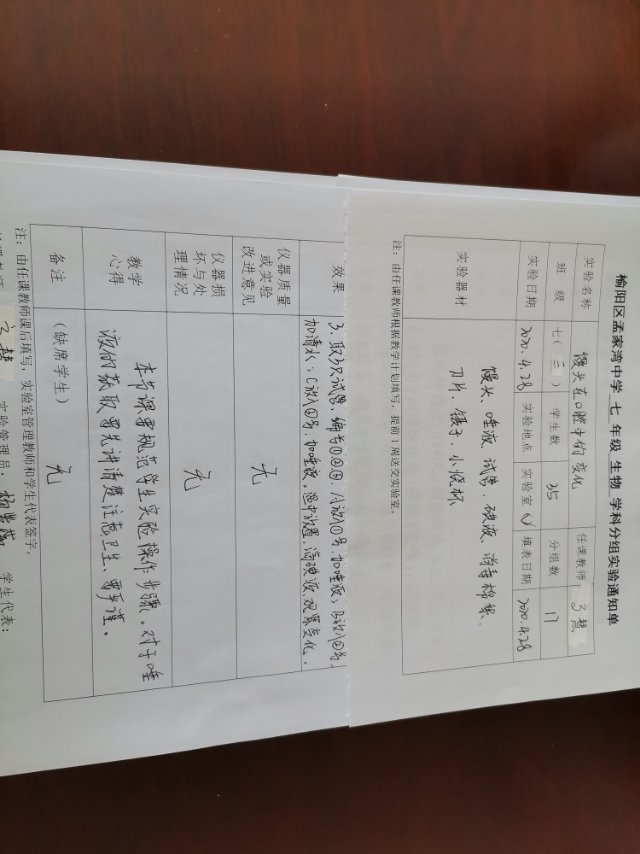 榆阳区孟家湾中学 七 年级 生物 学科分组实验通知单
实验名称 馒头在口腔中的变化 任课教师
班 级 七(三) 学生数 35 分组数 17
实验日期 2020.4.28 实验地点 实验室(√) 填表日期 2020.4.28
实验器材 馒头、唾液、试管、碘液、消毒棉絮、
刀片、镊子、小烧杯
注：由任课教师根据教学计划填写，提前1周送交实验室。
效果 3、取3只试管，编号①②③，A放入①号，加唾液；B放入②号，
加清水；C放入③号，加唾液，温中放置，滴碘液，观察变化。
仪器质量
或实验
改进意见 无
仪器损
坏与处
理情况 无
教学
心得 本节课要规范学生实验操作步骤。对于唾
液的获取要先讲清楚注意卫生、要严谨。
备注 (缺席学生) 无
注：由任课教师课后填写，实验室管理教师和学生代表签字。
实验管理员： 学生代表：